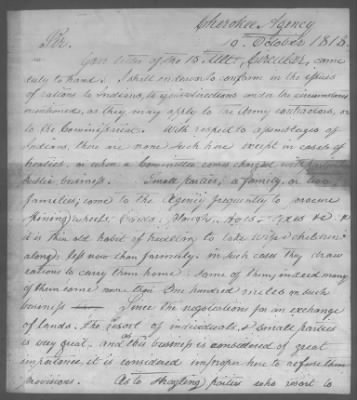 Cherokee Agency
October 1818
Sir.
Your letter of the 15 Ult. Circular, came
duly to hand. I shall endeavor to conform in the issues
of rations to Indians, to your directions under the circumstances
mentioned, as they may apply to the Army contractors, or
to the Commissariat. With respect to assemblages of
Indians, there are none such here except in cases of
treaties, or when a Committee come charged with
public business. Small parties, a family, or two
families, come to the Agency frequently to procure
spinning wheels, Cards, Ploughs, Hoes, axes &c &
it is their old habit of travelling to take wife & children
along, less now than formerly. in such cases they draw
rations to carry them home. Some of them, indeed many
of them come more than One hundred miles on such
business Since the negotiations for an exchange
of lands, the resort of individuals, & small parties
is very great, and as this business is considered of great
importance it is considered improper here to refuse them
provisions. As to Straggling parties who resort to